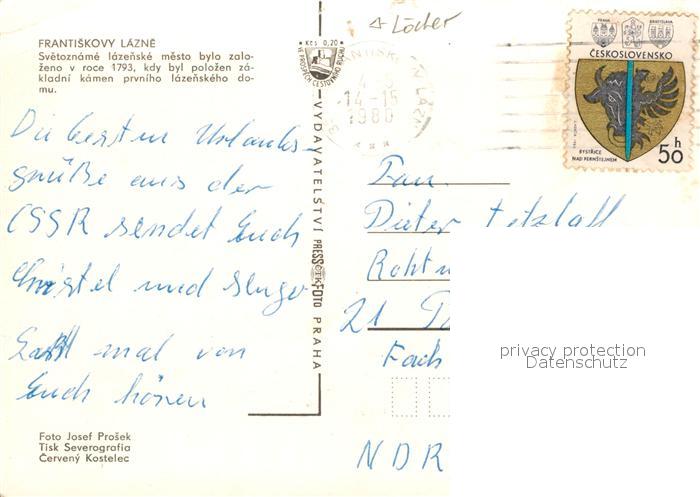 FRANTIŠKOVY LÁZNĚ
Světoznámé lázeňské město bylo zalo-
ženo v roce 1793, kdy byl položen zá-
kladní kámen prvního lázeňského do-
mu.
Die besten Urlaubs-
grüße aus der
ČSSR sendet Euch
Christel und
Laßt mal von
Euch hören
Foto Josef Prošek
Tisk Severografia
Červený Kostelec
Kčs 0,20
VE PROSPĚCH CESTOVNÍHO RUCHU
VYDAVATELSTVÍ PRESSFOTO PRAHA
Löcher
FRANTIŠKOVY LÁZNĚ
14-15
1980
PRAHA BRATISLAVA
ČESKOSLOVENSKO
BYSTŘICE
NAD PERNŠTEJNEM
50 h
Fam.
Dieter
21
Fach
NDR
privacy protection
Datenschutz